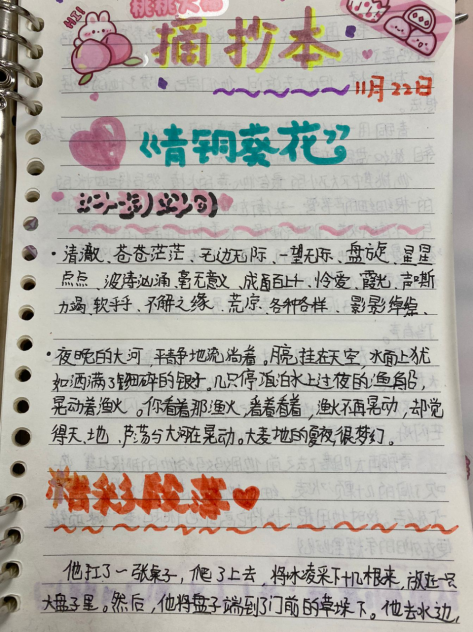 HI!
桃桃
摘抄本
11月22日
《青铜葵花》
好词好句
·清澈、苍苍茫茫、无边无际、一望无际、盘旋、星星
点点、波涛汹涌、毫无意义、成百上千、怜爱、霞光、声嘶
力竭、软乎乎、不解之缘、荒凉、各种各样、影影绰绰、
·夜晚的大河,平静地流淌着。月亮挂在天空,水面上犹
如洒满了细碎的银子。几只停泊水上过夜的渔船,
晃动着渔火。你看着那渔火,看着看着,渔火不再晃动,却觉
得天、地、芦荡与大河在晃动。大麦地的夏夜很梦幻。
精彩段落
他扛了一张桌子,爬了上去,将冰凌采下十几根来,放在一只
大盘子里。然后,他将盘子端到了门前的草垛下。他去水边,